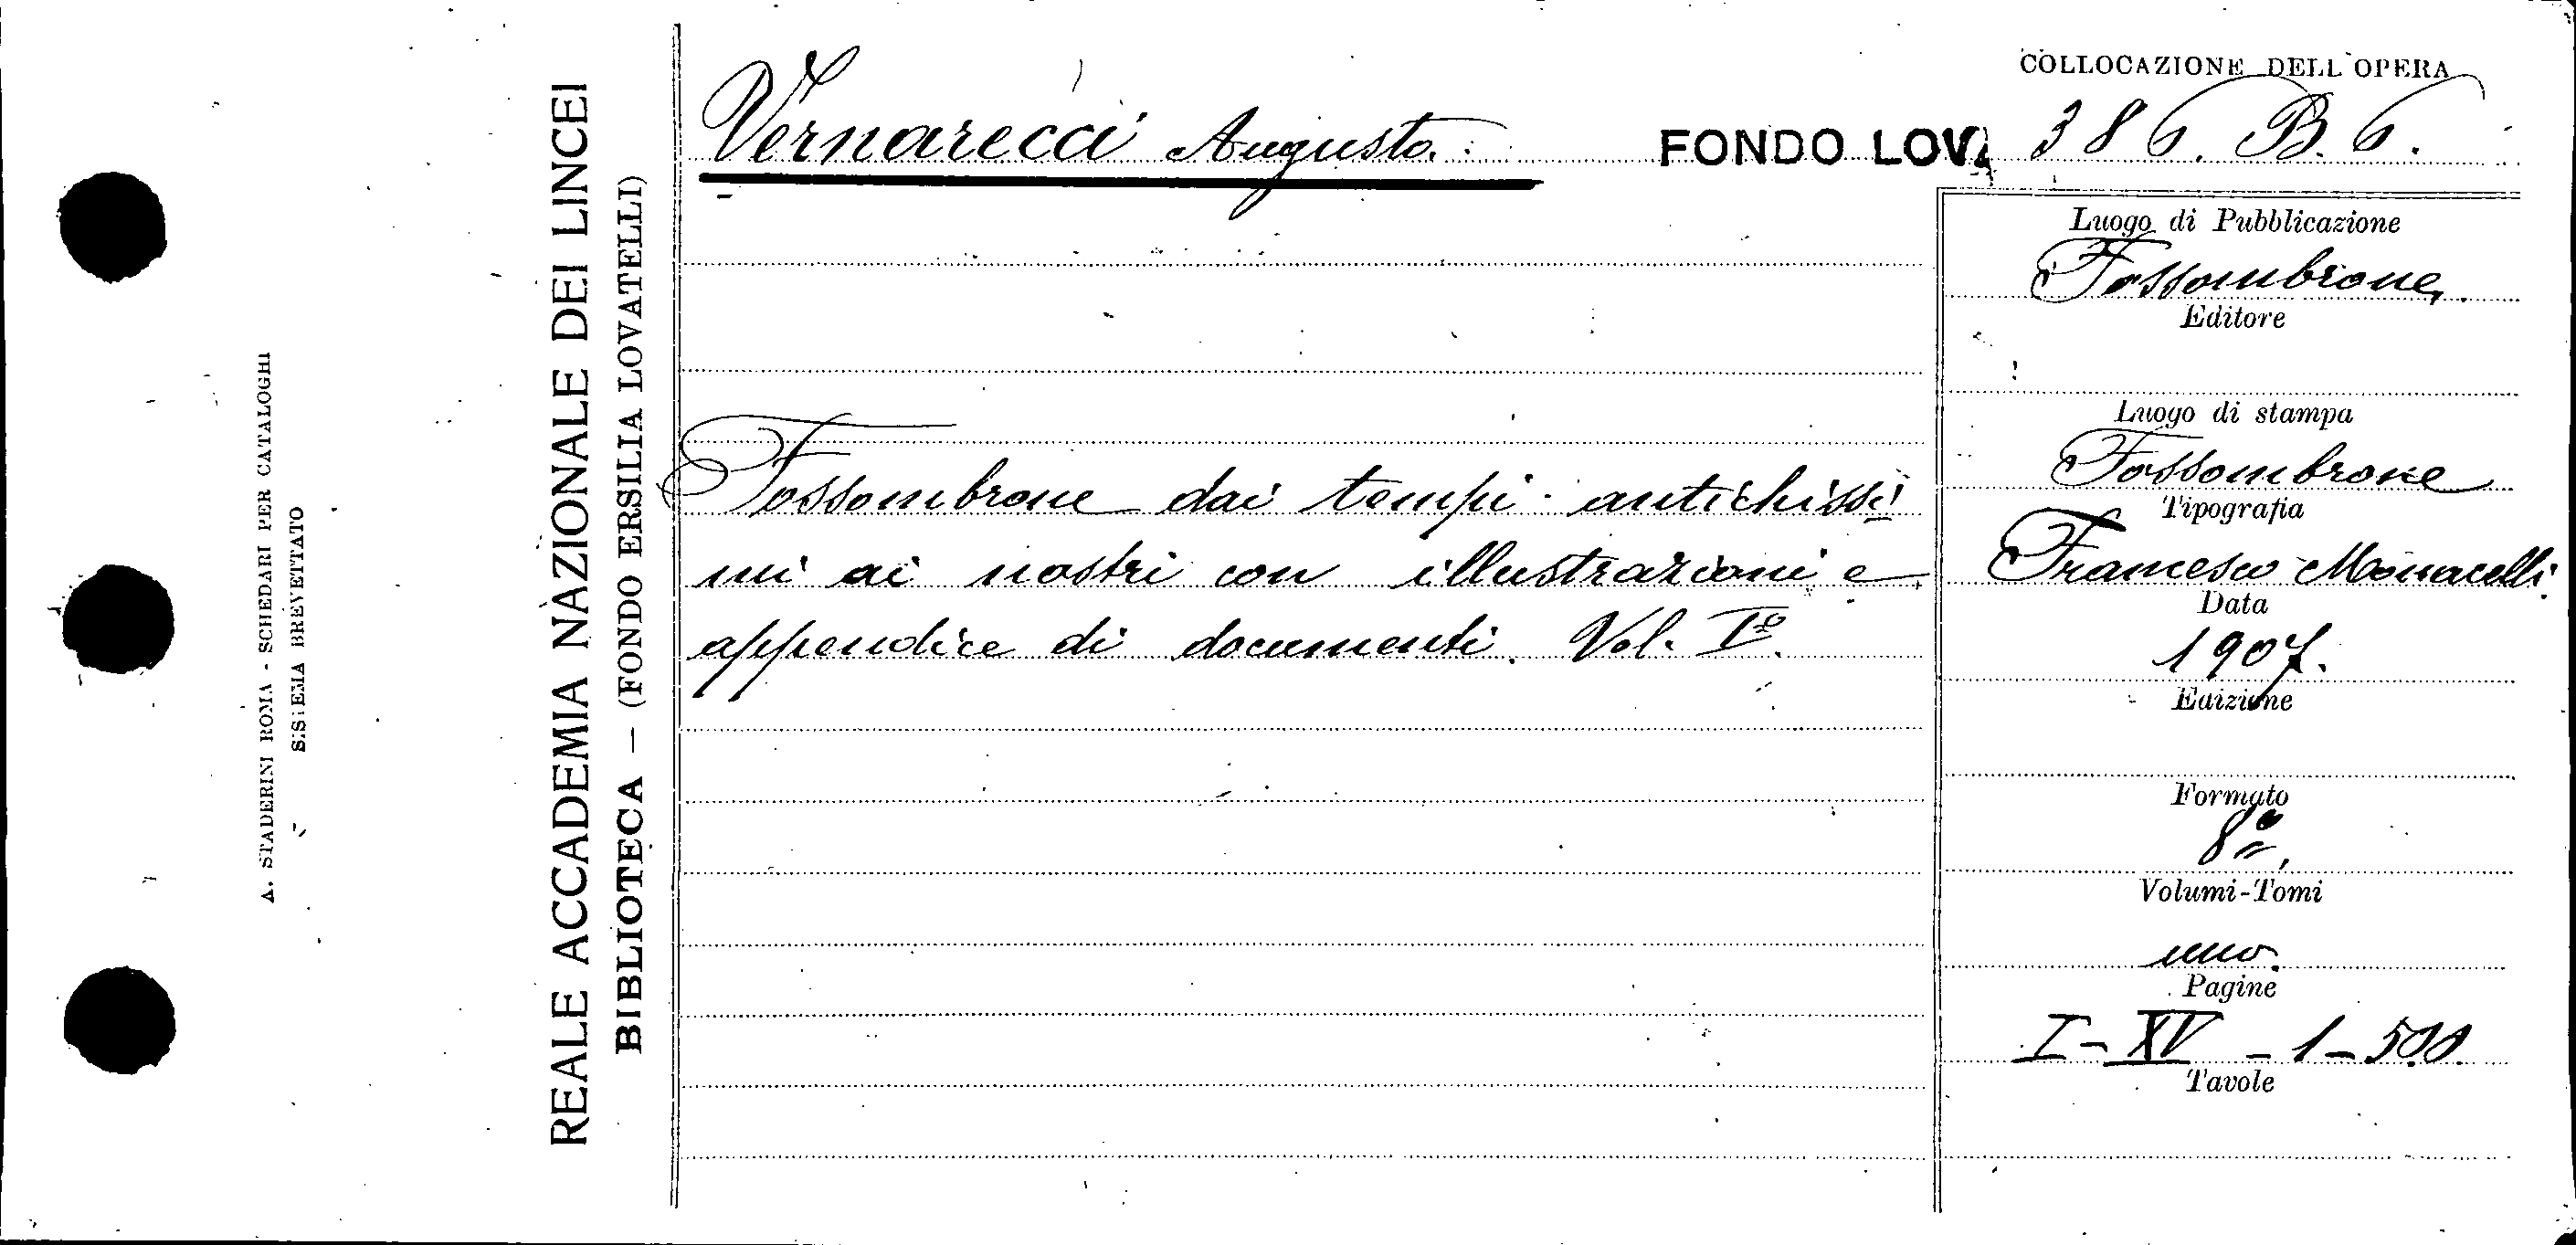 A. STADERINI ROMA - SCHEDARI PER CATALOGHI
SISTEMA BREVETTATO
REALE ACCADEMIA NAZIONALE DEI LINCEI
BIBLIOTECA — (FONDO ERSILIA LOVATELLI)
Vernarecci Augusto.
FONDO LOVA
COLLOCAZIONE DELL'OPERA
386. B. 6.
Fossombrone dai tempi antichissi
mi ai nostri con illustrazioni e
appendice di documenti. Vol. Iº.
Luogo di Pubblicazione
Fossombrone.
Editore
Luogo di stampa
Fossombrone
Tipografia
Francesco Monacelli.
Data
1907.
Edizione
Formato
8º
Volumi-Tomi
uno.
Pagine
I-XV - 1-500
Tavole